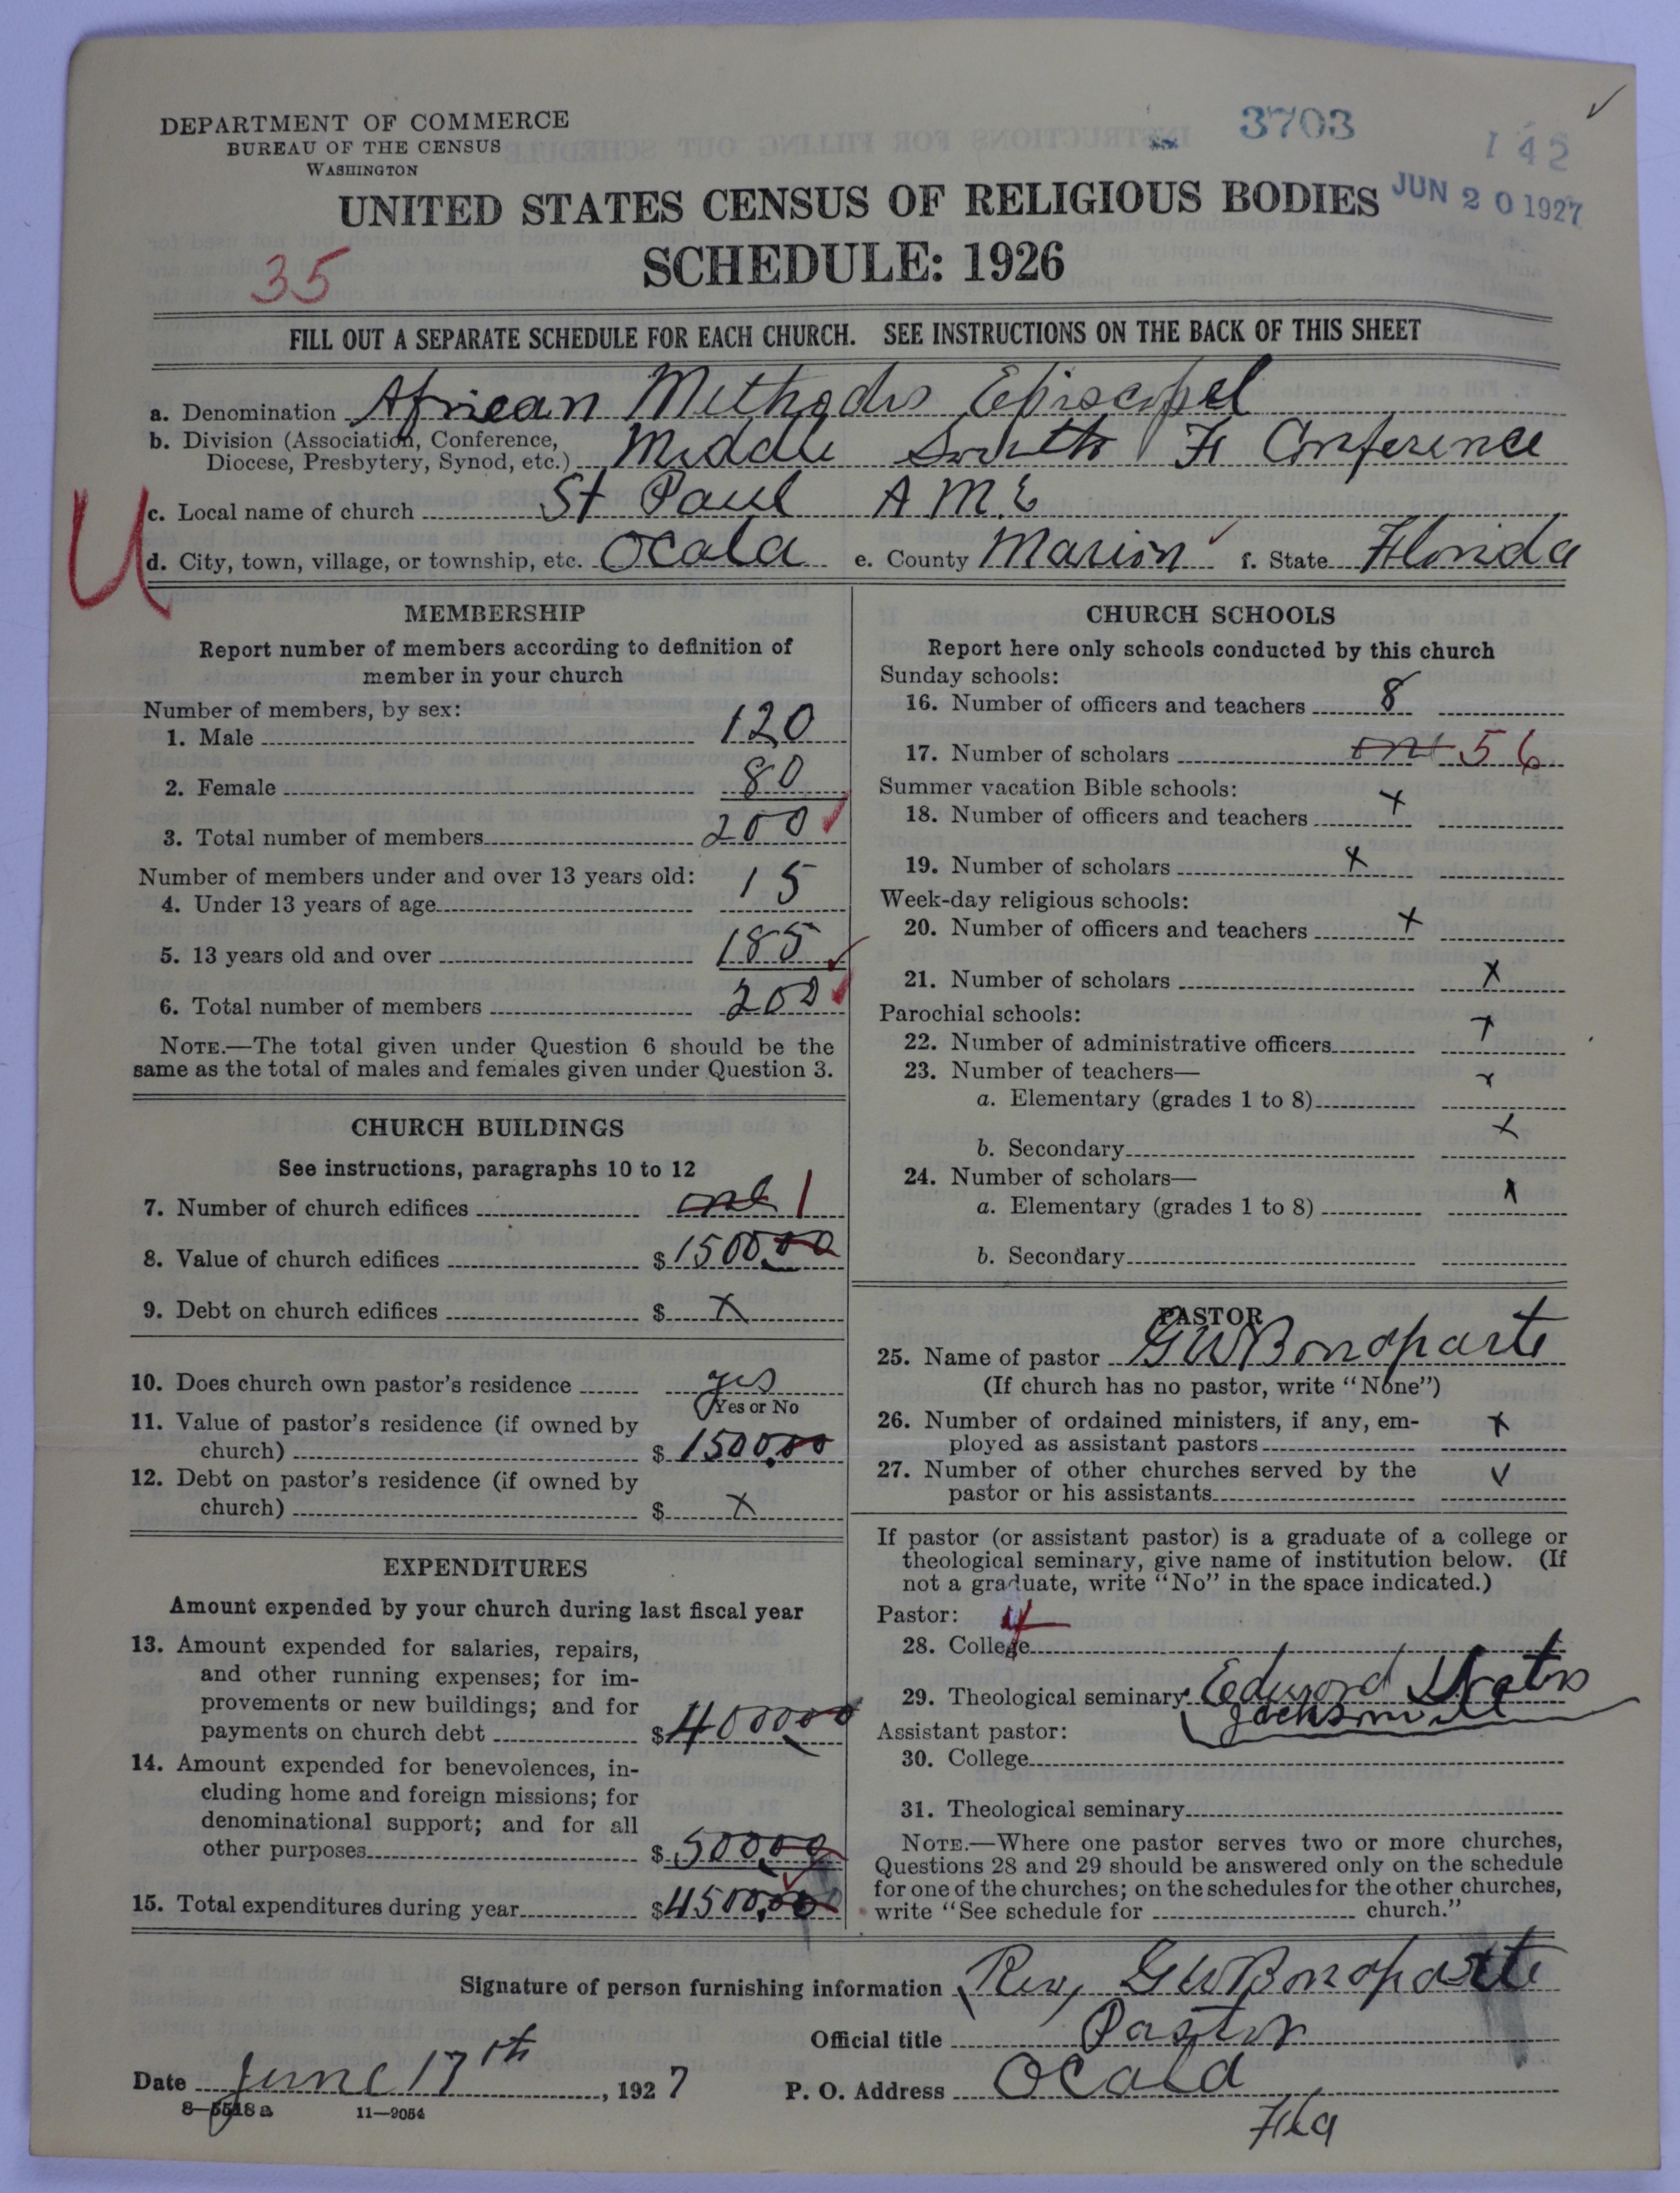 3703
142
JUN 20 1927
DEPARTMENT OF COMMERCE
BUREAU OF THE CENSUS
WASHINGTON
UNITED STATES CENSUS OF RELIGIOUS BODIES
SCHEDULE: 1926
35
FILL OUT A SEPARATE SCHEDULE FOR EACH CHURCH. SEE INSTRUCTIONS ON THE BACK OF THIS SHEET
a. Denomination African Methodis Episcopel
b. Division (Association, Conference,
Diocese, Presbytery, Synod, etc.) Middle South Fl Conference
U
c. Local name of church St Paul A M.E
d. City, town, village, or township, etc. Ocala e. County Marion f. State Florida
MEMBERSHIP
Report number of members according to definition of
member in your church
Number of members, by sex:
1. Male 120
2. Female 80
3. Total number of members 200
Number of members under and over 13 years old:
4. Under 13 years of age 15
5. 13 years old and over 185
6. Total number of members 200
NOTE.—The total given under Question 6 should be the
same as the total of males and females given under Question 3.
CHURCH BUILDINGS
See instructions, paragraphs 10 to 12
7. Number of church edifices one 1
8. Value of church edifices $1500.00
9. Debt on church edifices $ x
10. Does church own pastor's residence yes
Yes or No
11. Value of pastor's residence (if owned by
church) $1500.00
12. Debt on pastor's residence (if owned by
church) $ x
EXPENDITURES
Amount expended by your church during last fiscal year
13. Amount expended for salaries, repairs,
and other running expenses; for im-
provements or new buildings; and for
payments on church debt $4000.00
14. Amount expended for benevolences, in-
cluding home and foreign missions; for
denominational support; and for all
other purposes $500.00
15. Total expenditures during year $4500.00
CHURCH SCHOOLS
Report here only schools conducted by this church
Sunday schools:
16. Number of officers and teachers 8
17. Number of scholars 56
Summer vacation Bible schools:
18. Number of officers and teachers x
19. Number of scholars x
Week-day religious schools:
20. Number of officers and teachers x
21. Number of scholars x
Parochial schools:
22. Number of administrative officers x
23. Number of teachers— x
a. Elementary (grades 1 to 8)
b. Secondary x
24. Number of scholars—
a. Elementary (grades 1 to 8) x
b. Secondary
PASTOR
25. Name of pastor G W Bonaparte
(If church has no pastor, write "None")
26. Number of ordained ministers, if any, em-
ployed as assistant pastors x
27. Number of other churches served by the
pastor or his assistants
If pastor (or assistant pastor) is a graduate of a college or
theological seminary, give name of institution below. (If
not a graduate, write "No" in the space indicated.)
Pastor: 4
28. College
29. Theological seminary Edword
Jacksonville
Assistant pastor:
30. College
31. Theological seminary
NOTE.—Where one pastor serves two or more churches,
Questions 28 and 29 should be answered only on the schedule
for one of the churches; on the schedules for the other churches,
write "See schedule for church."
Signature of person furnishing information Rev, G W Bonaparte
Official title Pastor
Date June 17th, 1927 P. O. Address Ocala
Fla
8—5518a 11—9054